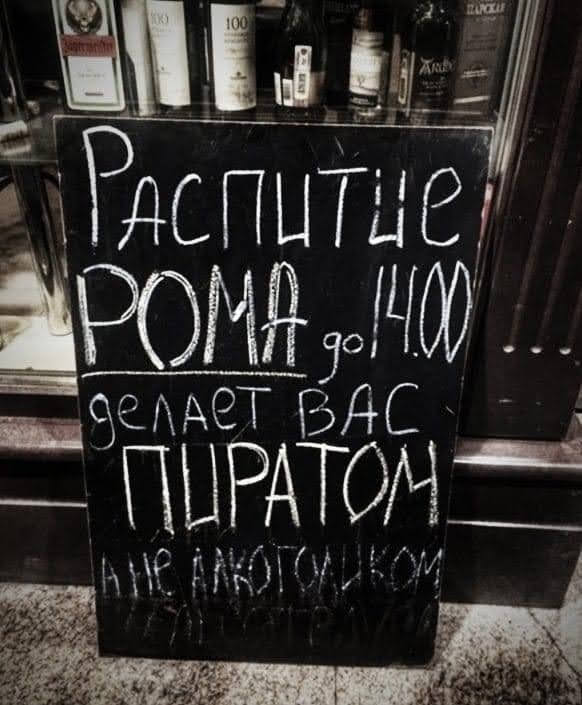 Jägermeister
100
100
ЦАРСКАЯ
РАСПИТИЕ
РОМА до 14.00
делает ВАС
ПИРАТОМ
А Не АЛКОГОЛИКОМ